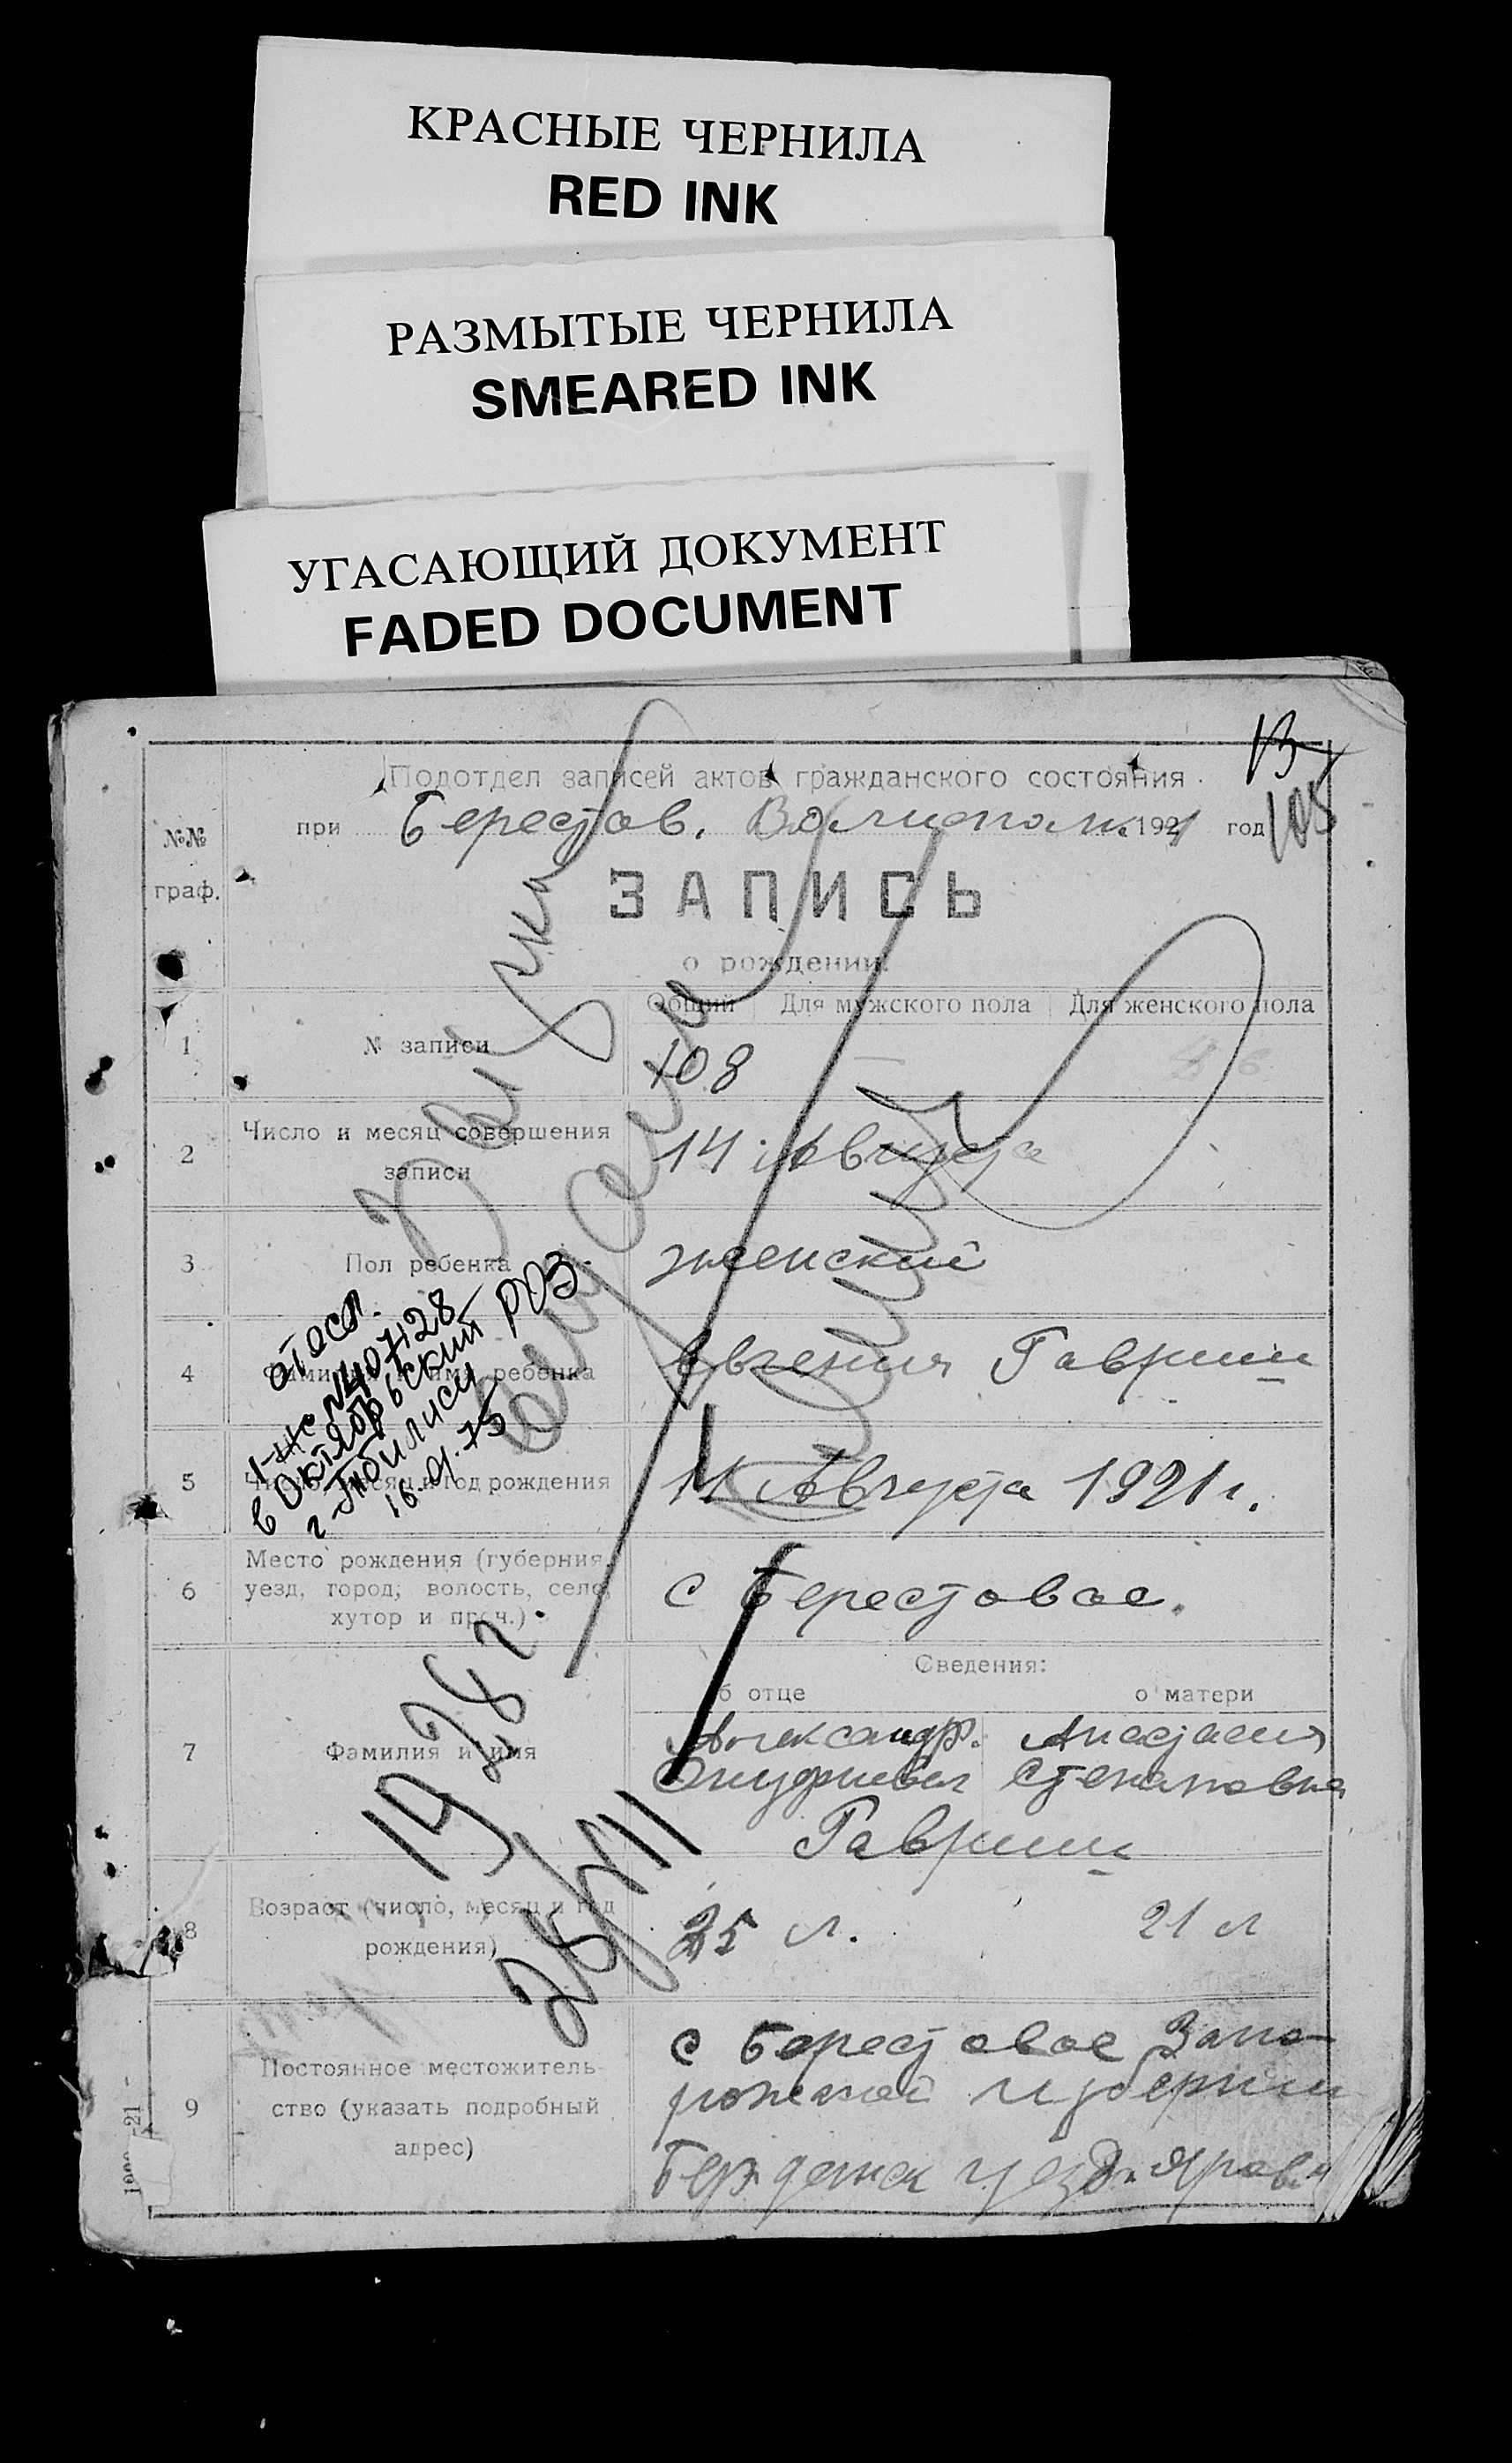 КРАСНЫЕ ЧЕРНИЛА
RED INK
РАЗМЫТЫЕ ЧЕРНИЛА
SMEARED INK
УГАСАЮЩИЙ ДОКУМЕНТ
FADED DOCUMENT
Подотдел записей актов гражданского состояния
при Берестов. Волисполк. 1921 год
105
№№
граф.
ЗАПИСЬ
о рождении
Общий Для мужского пола Для женского пола
1 № записи 108 —
2 Число и месяц совершения
записи
14 Августа
3 Пол ребенка женский
4 Фамилия и имя ребенка Евгения Гавриш
5 Число, месяц и год рождения 11 Августа 1921 г.
6 Место рождения (губерния,
уезд, город; волость, село,
хутор и проч.)
с Берестовое.
Сведения:
об отце о матери
7 Фамилия и имя
Александр. Анастасия
Онуфриевич Степановна
Гавриш
8 Возраст (число, месяц и год
рождения)
25 л. 21 л
9 Постоянное местожитель-
ство (указать подробный
адрес)
с Берестовое Запо-
рожской губернии
Бердянск уезд.
Выдана
1928 г
28/VII
I-ЖС №407128
в Октябрьский РОЗ
г-Тбилиси
16.01.75